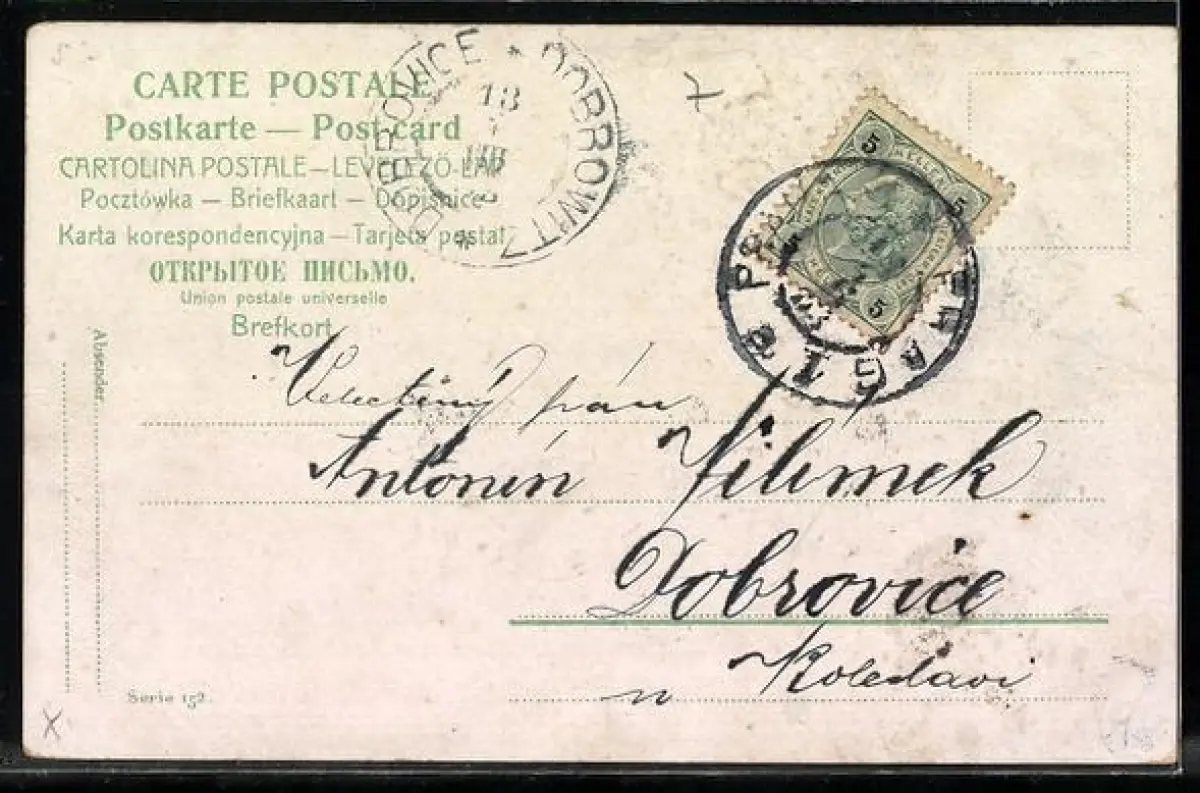 CARTE POSTALE
Postkarte — Post card
CARTOLINA POSTALE — LEVELEZŐ-LAP
Pocztówka — Briefkaart — Dopisnice
Karta korespondencyjna — Tarjeta postal
ОТКРЫТОЕ ПИСЬМО.
Union postale universelle
Brefkort
DOBROVICE * DOBROWITZ *
18
5
5
5
PRAG 1
Absender
pán
Antonín Vilímek
Dobrovice
u
Serie 152.